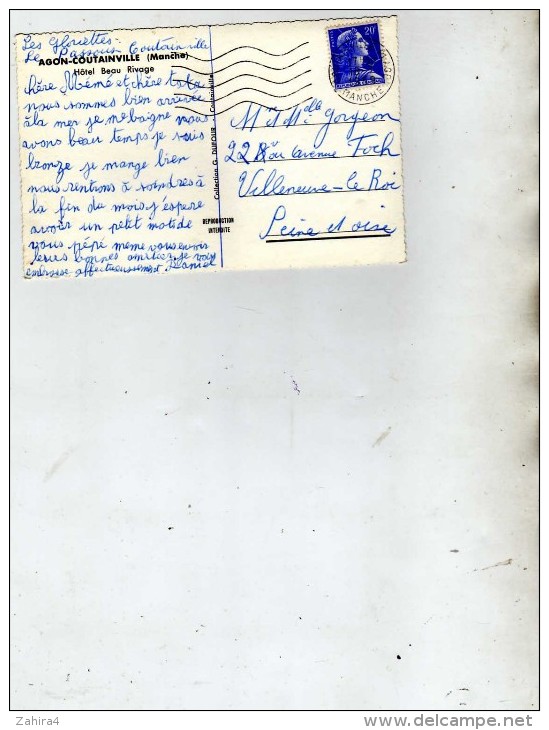 Les Gloriettes.
Le Passous Coutainville
AGON-COUTAINVILLE (Manche)
Hôtel Beau Rivage
chère Mémé et chère tata
nous sommes bien arrivée
à la mer je me baigne nous
avons beau temps je suis
bronze je mange bien
nous rentrons à
la fin du mois j'espere
avoir un petit mot de
vous pépé meme vous envoir
leurs bonnes amitiés je vous
embrasse affectueusement Daniel
Collection G. DUFOUR - Coutainville
REPRODUCTION
INTERDITE
20F
MANCHE
Mr Mlle Gorgeon
228 avenue Foch
Villeneuve-le Roi
Seine et oise
Zahira4
delcampe.net